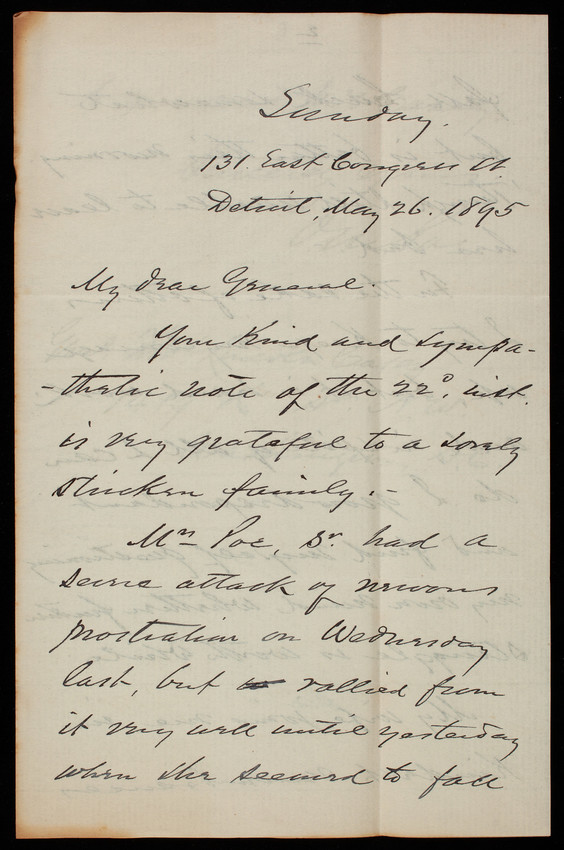 Sunday.
131. East Congress St.
Detroit, May 26. 1895
My dear General.
Your kind and sympa-
-thetic note of the 22d. inst.
is very grateful to a sorely
stricken family.-
Mrs Poe, Sr. had a
severe attack of nervous
prostration on Wednesday
last, but rallied from
it very well until yesterday
when she seemed to fall